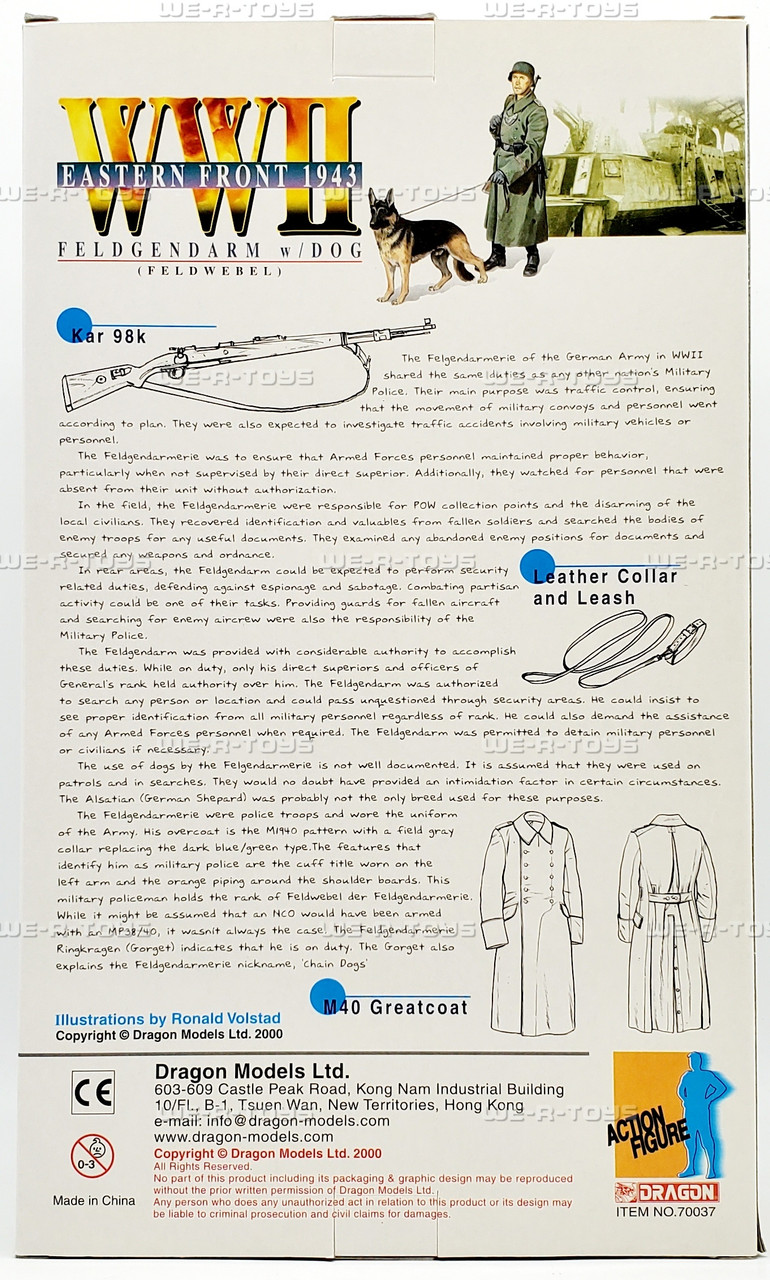 WE-R-TOYS WE-R-TOYS
WWII
EASTERN FRONT 1943
FELDGENDARM w/DOG
(FELDWEBEL)
Kar 98k
The Felgendarmerie of the German Army in WWII
shared the same duties as any other nation's Military
Police. Their main purpose was traffic control, ensuring
that the movement of military convoys and personnel went
according to plan. They were also expected to investigate traffic accidents involving military vehicles or
personnel.
The Feldgendarmerie was to ensure that Armed Forces personnel maintained proper behavior,
particularly when not supervised by their direct superior. Additionally, they watched for personnel that were
absent from their unit without authorization.
In the field, the Feldgendarmerie were responsible for POW collection points and the disarming of the
local civilians. They recovered identification and valuables from fallen soldiers and searched the bodies of
enemy troops for any useful documents. They examined any abandoned enemy positions for documents and
secured any weapons and ordnance.
In rear areas, the Feldgendarm could be expected to perform security
related duties, defending against espionage and sabotage. Combating partisan
activity could be one of their tasks. Providing guards for fallen aircraft
and searching for enemy aircrew were also the responsibility of the
Military Police.
Leather Collar
and Leash
The Feldgendarm was provided with considerable authority to accomplish
these duties. While on duty, only his direct superiors and officers of
General's rank held authority over him. The Feldgendarm was authorized
to search any person or location and could pass unquestioned through security areas. He could insist to
see proper identification from all military personnel regardless of rank. He could also demand the assistance
of any Armed Forces personnel when required. The Feldgendarm was permitted to detain military personnel
or civilians if necessary.
The use of dogs by the Felgendarmerie is not well documented. It is assumed that they were used on
patrols and in searches. They would no doubt have provided an intimidation factor in certain circumstances.
The Alsatian (German Shepard) was probably not the only breed used for these purposes.
The Feldgendarmerie were police troops and wore the uniform
of the Army. His overcoat is the M1940 pattern with a field gray
collar replacing the dark blue/green type.The features that
identify him as military police are the cuff title worn on the
left arm and the orange piping around the shoulder boards. This
military policeman holds the rank of Feldwebel der Feldgendarmerie.
While it might be assumed that an NCO would have been armed
with an MP38/40, it wasnit always the case. The Feldgendarmerie
Ringkragen (Gorget) indicates that he is on duty. The Gorget also
explains the Feldgendarmerie nickname, 'Chain Dogs'
M40 Greatcoat
Illustrations by Ronald Volstad
Copyright © Dragon Models Ltd. 2000
CE
0-3
Made in China
Dragon Models Ltd.
603-609 Castle Peak Road, Kong Nam Industrial Building
10/FL., B-1, Tsuen Wan, New Territories, Hong Kong
e-mail: info@dragon-models.com
www.dragon-models.com
Copyright © Dragon Models Ltd. 2000
All Rights Reserved.
No part of this product including its packaging & graphic design may be reproduced
without the prior written permission of Dragon Models Ltd.
Any person who does any unauthorized act in relation to this product or its design may
be liable to criminal prosecution and civil claims for damages.
ACTION
FIGURE
DRAGON
ITEM NO.70037